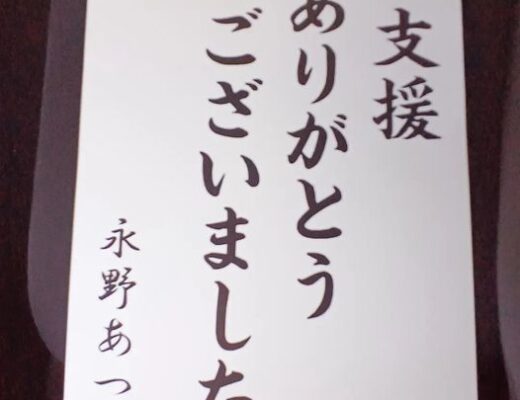 支援
ありがとう
ございました
永野あつ